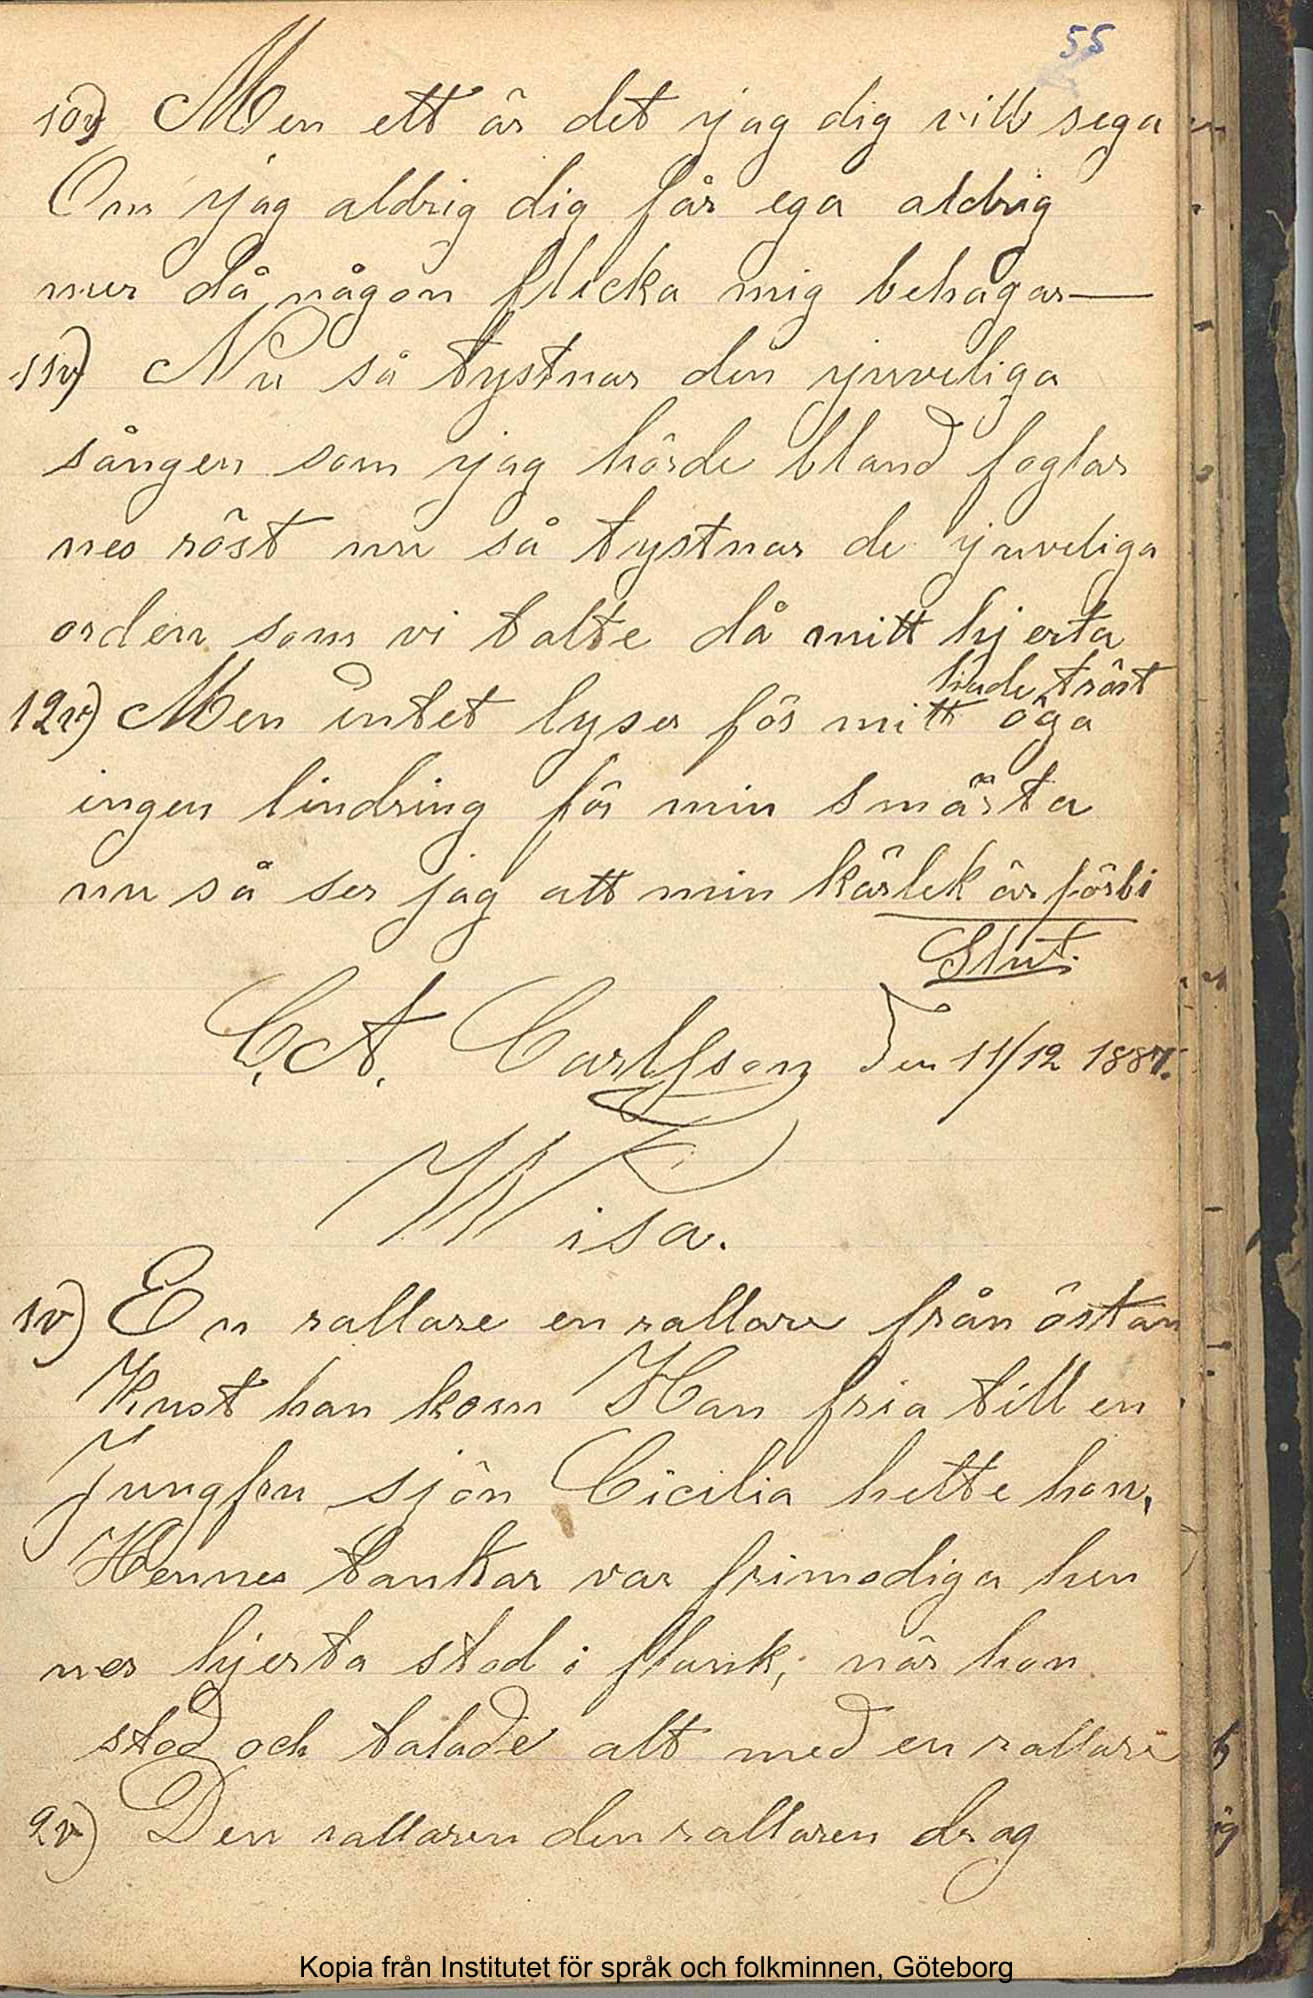 55
10v) Men ett är det jag dig vill sega
Om jag aldrig dig får ega aldrig
mer då någon flicka mig behagar—
11v) Nu så tystnar den ijuveliga
sången som jag hörde bland foglar
nes röst nu så tystnar de ijuveliga
orden som vi talte då mitt hjerta
hade tröst
12v) Men intet lyser för mitt öga
ingen lindring för min smärta
nu så ser jag att min kärlek är förbi
Slut.
C. A. Carlfson Den 11/12 1887.
Wisa.
1v) En rallare en rallare från östan
Kust han kom Han fria till en
Jungfru sjön Cicilia hette hon,
Hennes tankar var frimodiga hen
nes hjerta stod i flank; när hon
stod och talade alt med en rallare
2v) Den rallaren den rallaren drog
Kopia från Institutet för språk och folkminnen, Göteborg